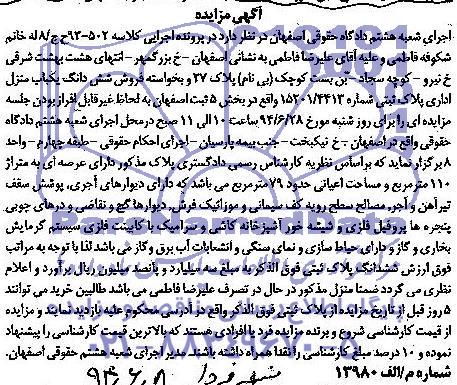 آگهی مزایده
اجرای شعبه هشتم دادگاه حقوقی اصفهان در نظر دارد در پرونده اجرایی کلاسه ۵۰۲-۹۳ج ح/۸ له خانم
شکوفه فاطمی و علیه آقای علیرضا فاطمی به نشانی اصفهان - خ بزرگمهر - انتهای هشت بهشت شرقی
خ نیرو - کوچه سجاد - بن بست کوچک (بی نام) پلاک ۲۷ و بخواسته فروش شش دانگ یکباب منزل
اداری پلاک ثبتی شماره ۱۵۲۰۱/۳۴۱۳ واقع در بخش ۵ ثبت اصفهان به لحاظ غیر قابل افراز بودن جلسه
مزایده ای را برای روز شنبه مورخ ۹۴/۶/۲۸ ساعت ۱۰ الی ۱۱ صبح در محل اجرای شعبه هشتم دادگاه
حقوقی واقع در اصفهان - خ نیکبخت - جنب بیمه پارسیان - اجرای احکام حقوقی - طبقه چهارم - واحد
۸ برگزار نماید که بر اساس نظریه کارشناس رسمی دادگستری پلاک مذکور دارای عرصه ای به متراژ
۱۱۰ متر مربع و مساحت اعیانی حدود ۷۹ متر مربع می باشد که دارای دیوارهای آجری، پوشش سقف
تیرآهن و آجر، مصالح سطح رویه کف سیمانی و موزائیک فرش، دیوارها گچ و نقاشی و درهای چوبی
پنجره ها پروفیل فلزی و شیشه خور آشپزخانه کاشی و سرامیک با کابینت فلزی سیستم گرمایش
بخاری و گاز و دارای حیاط سازی و نمای سنگی و انشعابات آب برق و گاز می باشد لذا با توجه به مراتب
فوق ارزش ششدانگ پلاک ثبتی فوق الذکر به مبلغ سه میلیارد و پانصد میلیون ریال برآورد و اعلام
نظری می گردد ضمنا منزل مذکور در حال در تصرف علیرضا فاطمی می باشد طالبین خرید می توانند
۵ روز قبل از تاریخ مزایده از پلاک ثبتی فوق الذکر واقع در آدرس محکوم علیه بازدید نمایند و مزایده
از قیمت کارشناسی شروع و برنده مزایده فرد یا افرادی هستند که بالاترین قیمت کارشناسی را پیشنهاد
نموده و ۱۰ درصد مبلغ کارشناسی را نقدا همراه داشته باشند. مدیر اجرای شعبه هشتم حقوقی اصفهان.
شماره م/الف ۱۳۹۸۰
۹۴،۶،۸
۰۲۱-۸۸۳۴۹۶۷۰-۵